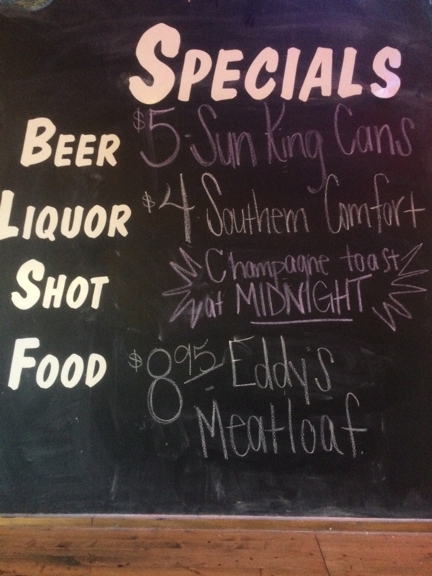 SPECIALS
BEER $5 Sun King Cans
LIQUOR $4 Southern Comfort
SHOT Champagne toast
at MIDNIGHT
FOOD $8.95 Eddy's
Meatloaf